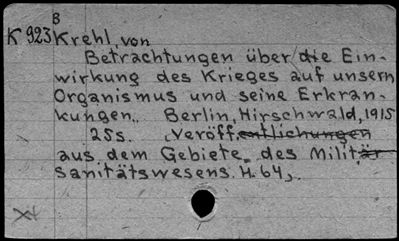 B
K 923 Krehl, von
Betrachtungen über die Ein-
wirkung des Krieges auf unsern
Organismus und seine Erkran-
kungen. Berlin, Hirschwald, 1915
25s. (Veröff.entlichungen
aus dem Gebiete des Militär
sanitätswesens. H.64).